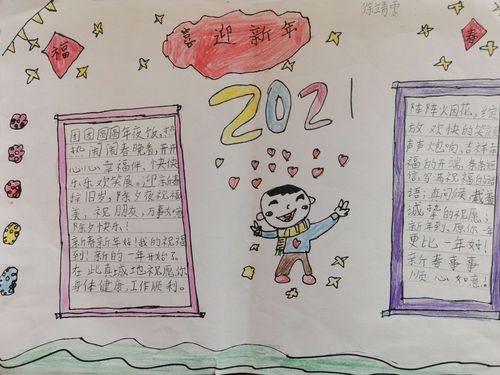 徐靖雯
喜迎新年
福
春
2021
团团圆圆年夜饭,热
热闹闹春晚看,开开
心心幸福伴,快快
乐乐欢笑展。迎新春
辞旧岁,除夕夜祝福
美,祝朋友,万事大吉
除夕快乐!
新春新年好!我的祝福
到!新的一年开始了
在此真诚地祝愿你
身体健康,工作顺利。
阵阵火因花,绽
放欢快的笑
声声炮响,吉祥幸
福的开端,条条短
信,写满祝福的话
语;真问候戴着
诚挚的祝愿;
新年到,愿你一年
更比一年好!
新春事事
顺心如意!